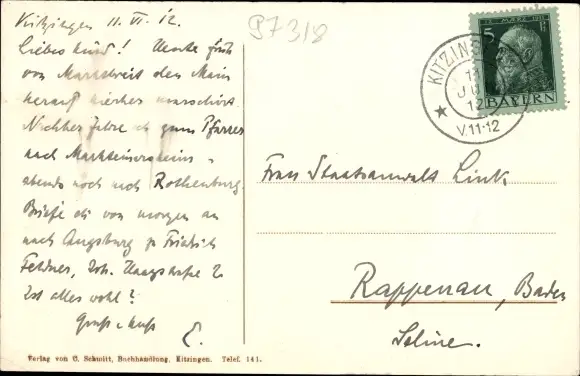 Kitzingen 11. VI. 12.
P7318
Liebes Kind! Heute früh
von Marktbreit den Main
herauf hierher marschirt
Nachher fahre ich zum Pfarrer
nach Markteinersheim -
abends noch nach Rothenburg.
Briefe etc von morgen an
nach Augsburg zu Friedrich
Feldner, Joh.
Ist alles wohl?
Gruß u Kuß
E.
Verlag von G. Schmitt, Buchhandlung, Kitzingen. Telef. 141.
5
BAYERN
KITZINGEN
11
JUN
12
V.11-12
Frau Staatsanwalt Link
Rappenau, Baden
Saline.